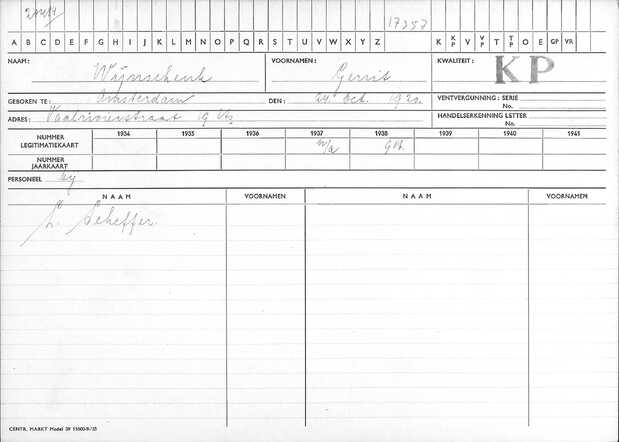 17357
A B C D E F G H I J K L M N O P Q R S T U V W X Y Z K KP V VP T TP O E GP VR
NAAM: Wijnschenk VOORNAMEN: Gerrit KWALITEIT: KP
GEBOREN TE: Amsterdam DEN: 24 Oct. 1920. VENTVERGUNNING: SERIE
No.
ADRES: Vaalrivierstraat 19 HANDELSERKENNING LETTER
No.
NUMMER LEGITIMATIEKAART 1934 1935 1936 1937 1938 1939 1940 1941
NUMMER JAARKAART
PERSONEEL bij
NAAM VOORNAMEN NAAM VOORNAMEN
L. Scheffer
CENTR. MARKT Model 39 15603-9-'35